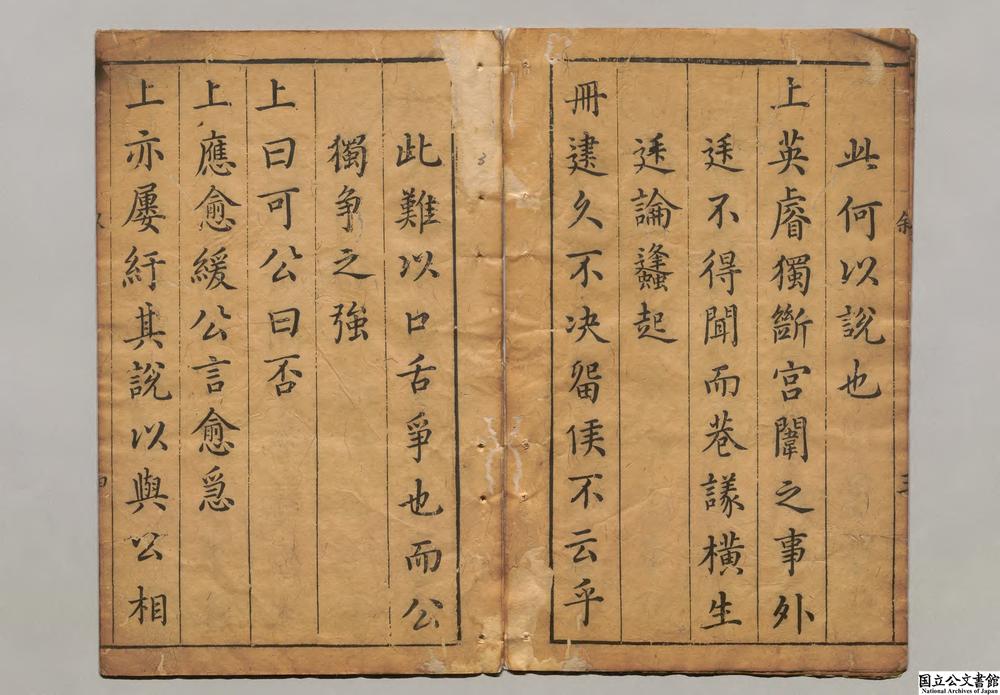 此何以說也
上英睿獨斷宮闈之事外
廷不得聞而巷議橫生
廷論蠭起
冊建久不决留侯不云乎
此難以口舌爭也而公
獨爭之強
上曰可公曰否
上應愈緩公言愈急
上亦屢紆其說以與公相
国立公文書館
National Archives of Japan